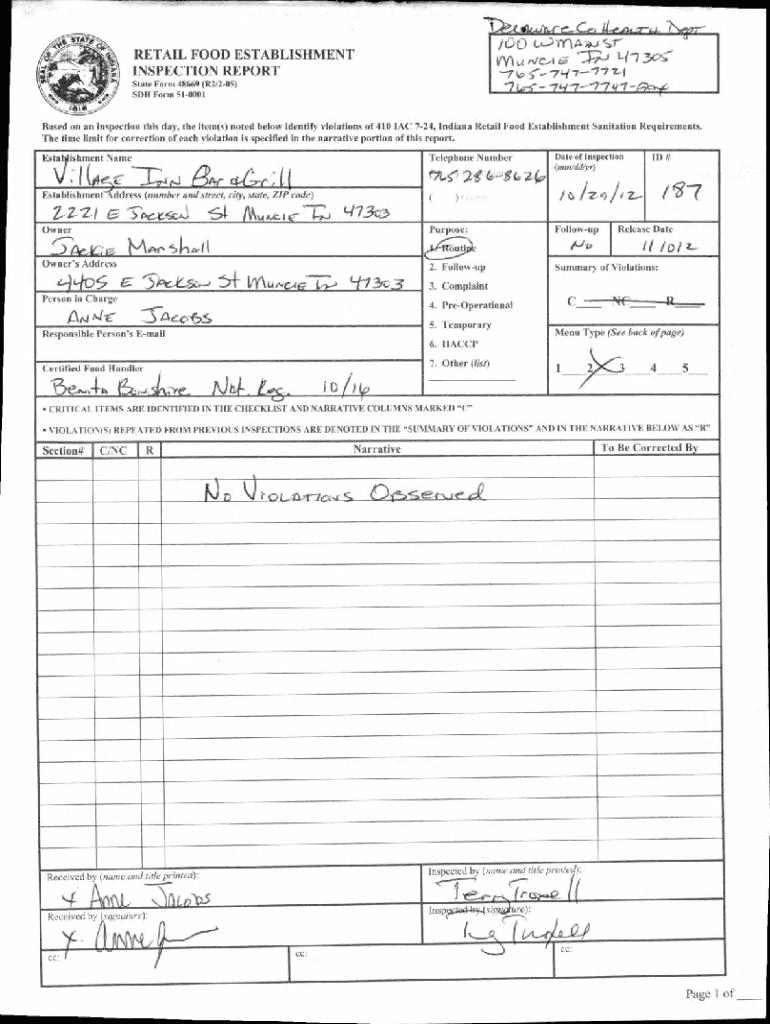 Delaware Co Health Dept
100 W MAIN ST
MUNCIE IN 47305
765-747-7721
765-747-7747-Fax
RETAIL FOOD ESTABLISHMENT
INSPECTION REPORT
State Form 48669 (R2/2-05)
SDH Form 51-0001
Based on an inspection this day, the item(s) noted below identify violations of 410 IAC 7-24, Indiana Retail Food Establishment Sanitation Requirements.
The time limit for correction of each violation is specified in the narrative portion of this report.
Establishment Name
Village Inn Bar & Grill
Telephone Number
765 286-8626
Date of Inspection
(mm/dd/yr)
10/29/12
ID #
187
Establishment Address (number and street, city, state, ZIP code)
2221 E Jackson St Muncie IN 47303
Owner
Jackie Marshall
Purpose:
1. Routine
2. Follow-up
3. Complaint
4. Pre-Operational
5. Temporary
6. HACCP
7. Other (list)
Follow-up
No
Release Date
Owner's Address
4405 E Jackson St Muncie IN 47303
Summary of Violations:
C___ NC___ R___
Person in Charge
ANNE JACOBS
Responsible Person's E-mail
Menu Type (See back of page)
1___ 2___ 3___ 4___ 5___
Certified Food Handler
Benita Nat. Reg. 10/16
• CRITICAL ITEMS ARE IDENTIFIED IN THE CHECKLIST AND NARRATIVE COLUMNS MARKED "C"
• VIOLATION(S) REPEATED FROM PREVIOUS INSPECTIONS ARE DENOTED IN THE "SUMMARY OF VIOLATIONS" AND IN THE NARRATIVE BELOW AS "R"
Section# C/NC R Narrative To Be Corrected By
No Violations Observed
Received by (name and title printed):
x Anne Jacobs
Inspected by (name and title printed):
Terry Troxell
Received by (signature):
x
Inspected by (signature):
cc:
cc:
cc:
Page 1 of ___